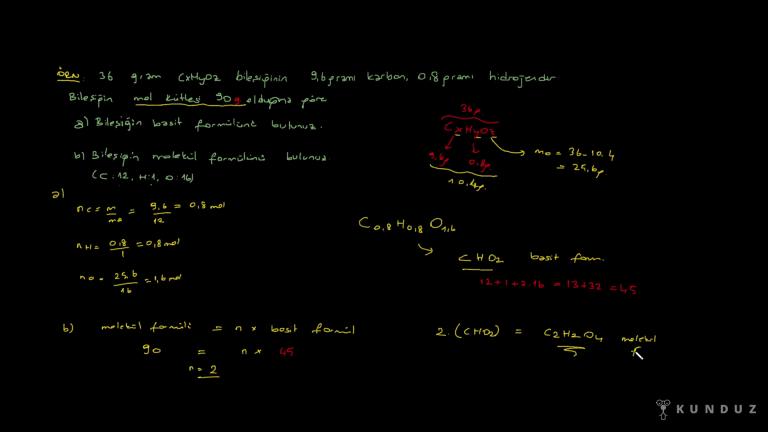 ÖRN 36 gram CxHyOz bileşiğinin 9,6 gramı karbon, 0,8 gramı hidrojendir
Bileşiğin mol kütlesi 90g olduğuna göre
a) Bileşiğin basit formülünü bulunuz.
b) Bileşiğin molekül formülünü bulunuz
(C:12, H:1, O:16)
36g
CxHyOz
9,6g 0,8g
10,4g
mO = 36-10,4
= 25,6g
a)
nC = m/ma = 9,6/12 = 0,8 mol
nH = 0,8/1 = 0,8 mol
nO = 25,6/16 = 1,6 mol
C0,8 H0,8 O1,6
CHO2 basit form.
12+1+2.16 = 13+32 = 45
b) molekül formülü = n x basit formül
90 = n x 45
n = 2
2.(CHO2) = C2H2O4 molekül
f
KUNDUZ